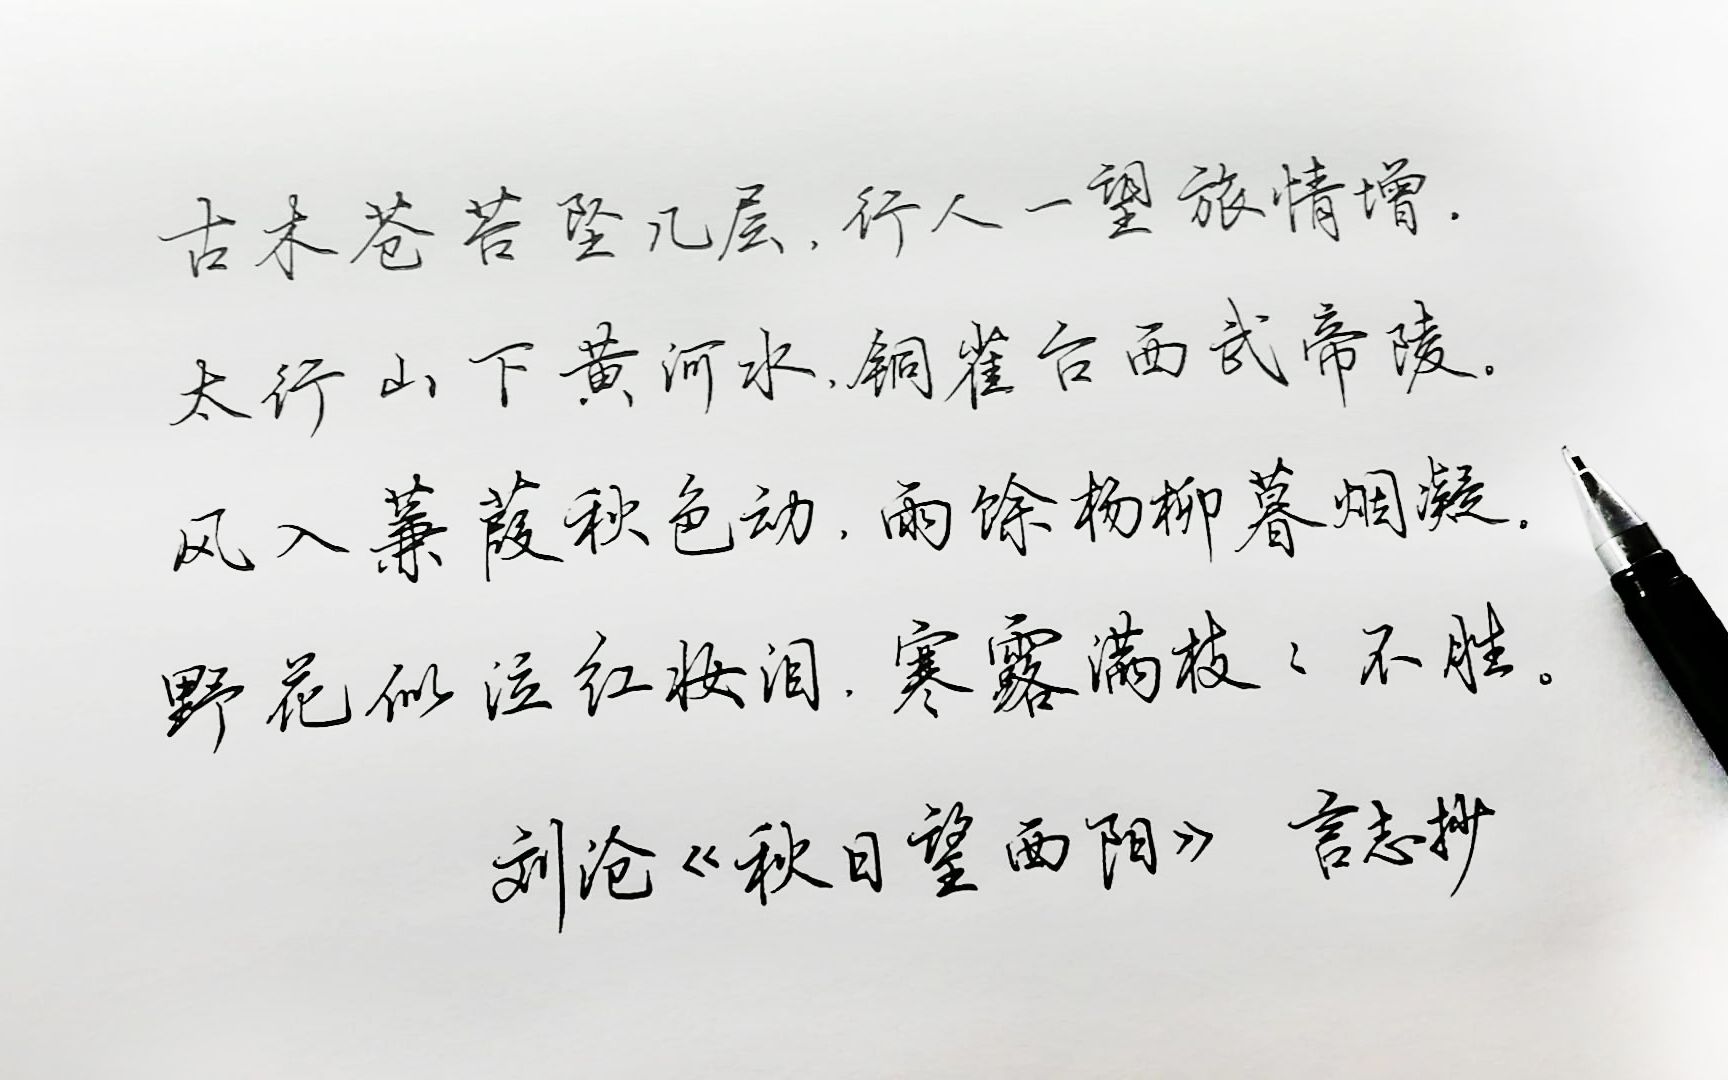 古木苍苔坠几层,行人一望旅情增.
太行山下黄河水,铜雀台西武帝陵。
风入蒹葭秋色动,雨馀杨柳暮烟凝。
野花似泣红妆泪,寒露满枝〻不胜。
刘沧《秋日望西阳》 言志抄